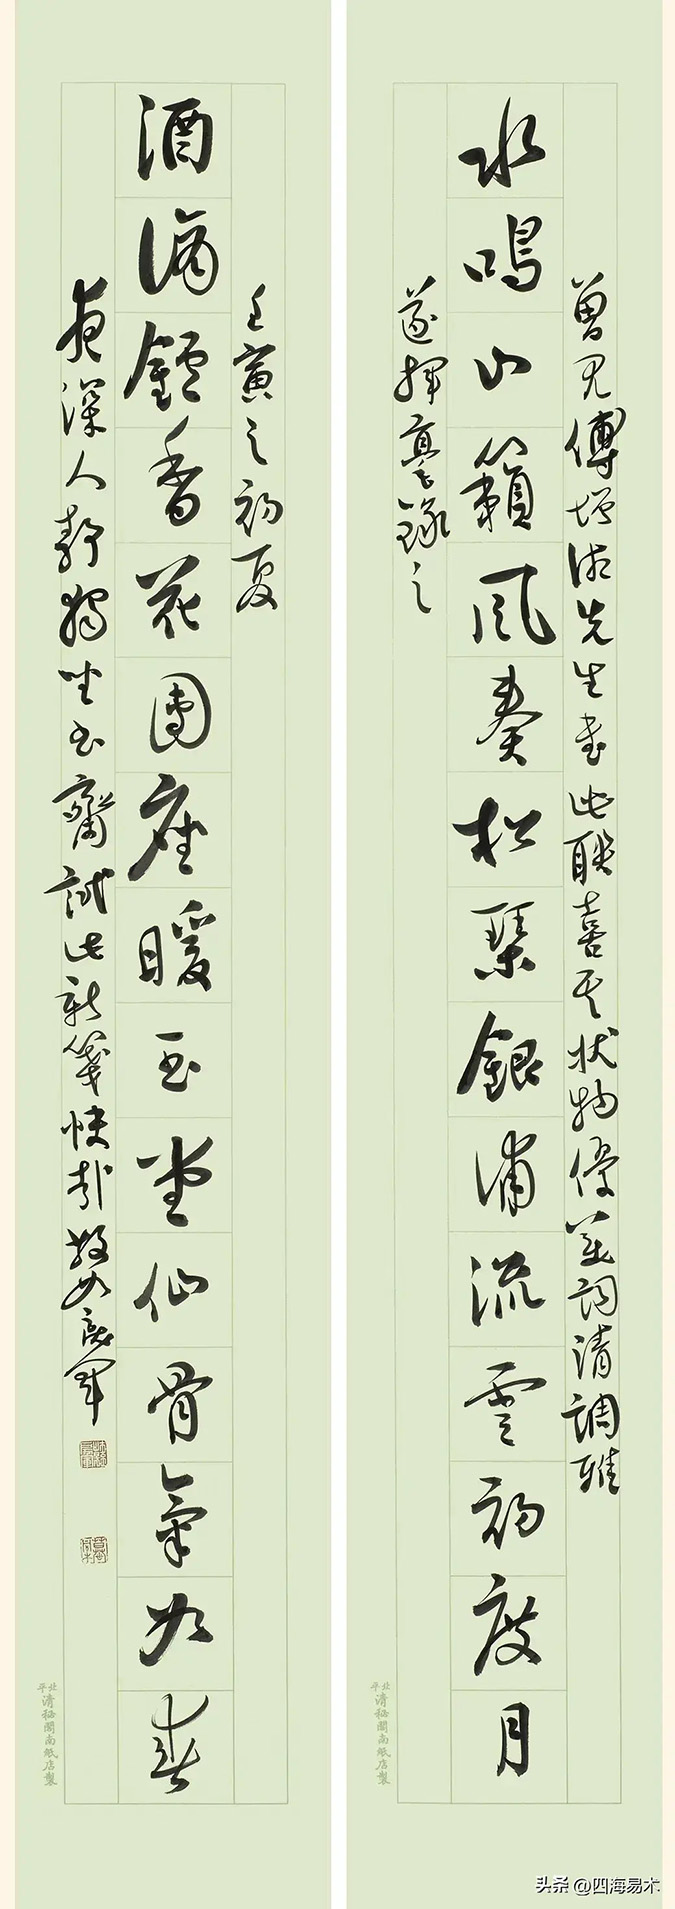 曾見傅增湘先生書此聯喜其狀物優美詞清調雅
水鳴山籟風奏松琴銀浦流雲初度月
遂揮毫錄之
北平清秘閣南紙店製
壬寅之初夏
酒滴鑪香花團座暖玉堂仙骨氣如春
夜深人靜獨坐書齋試此新箋快哉
北平清秘閣南紙店製
头条 @四海易木